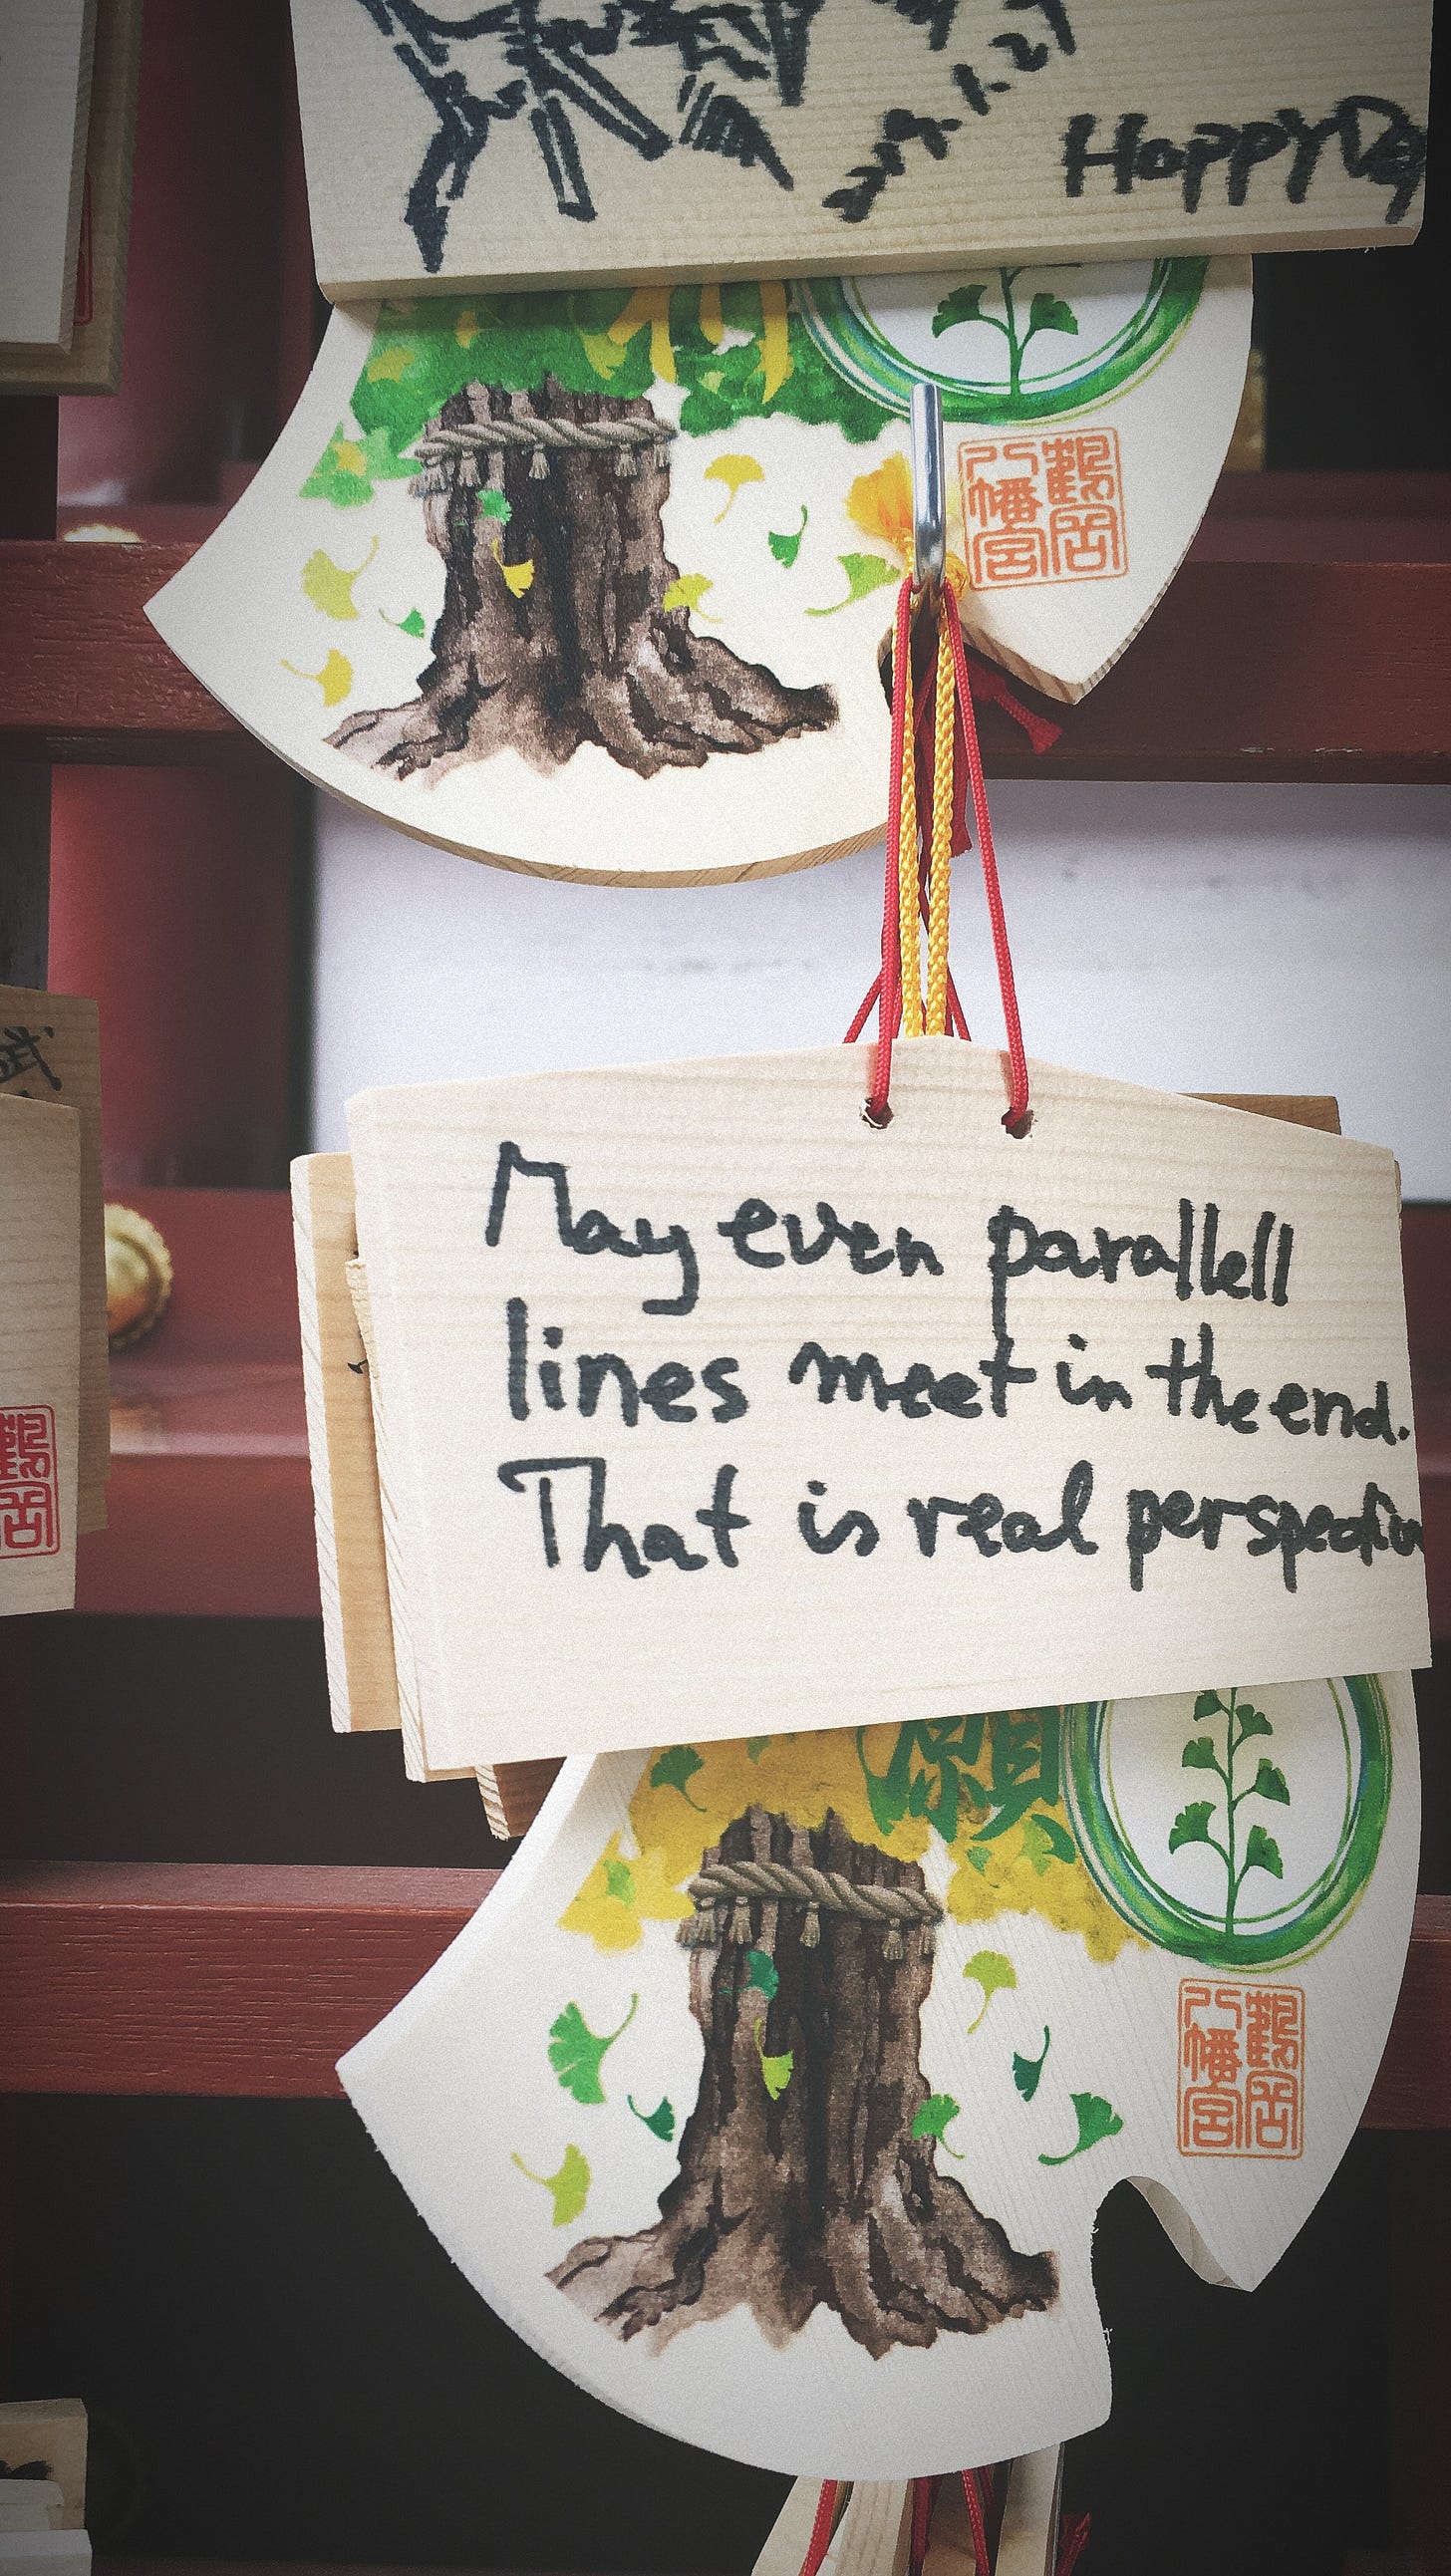 HappyDay
鶴岡
八幡宮
武
May even parallell
lines meet in the end.
That is real perspectiv
鶴岡
願
鶴岡
八幡宮